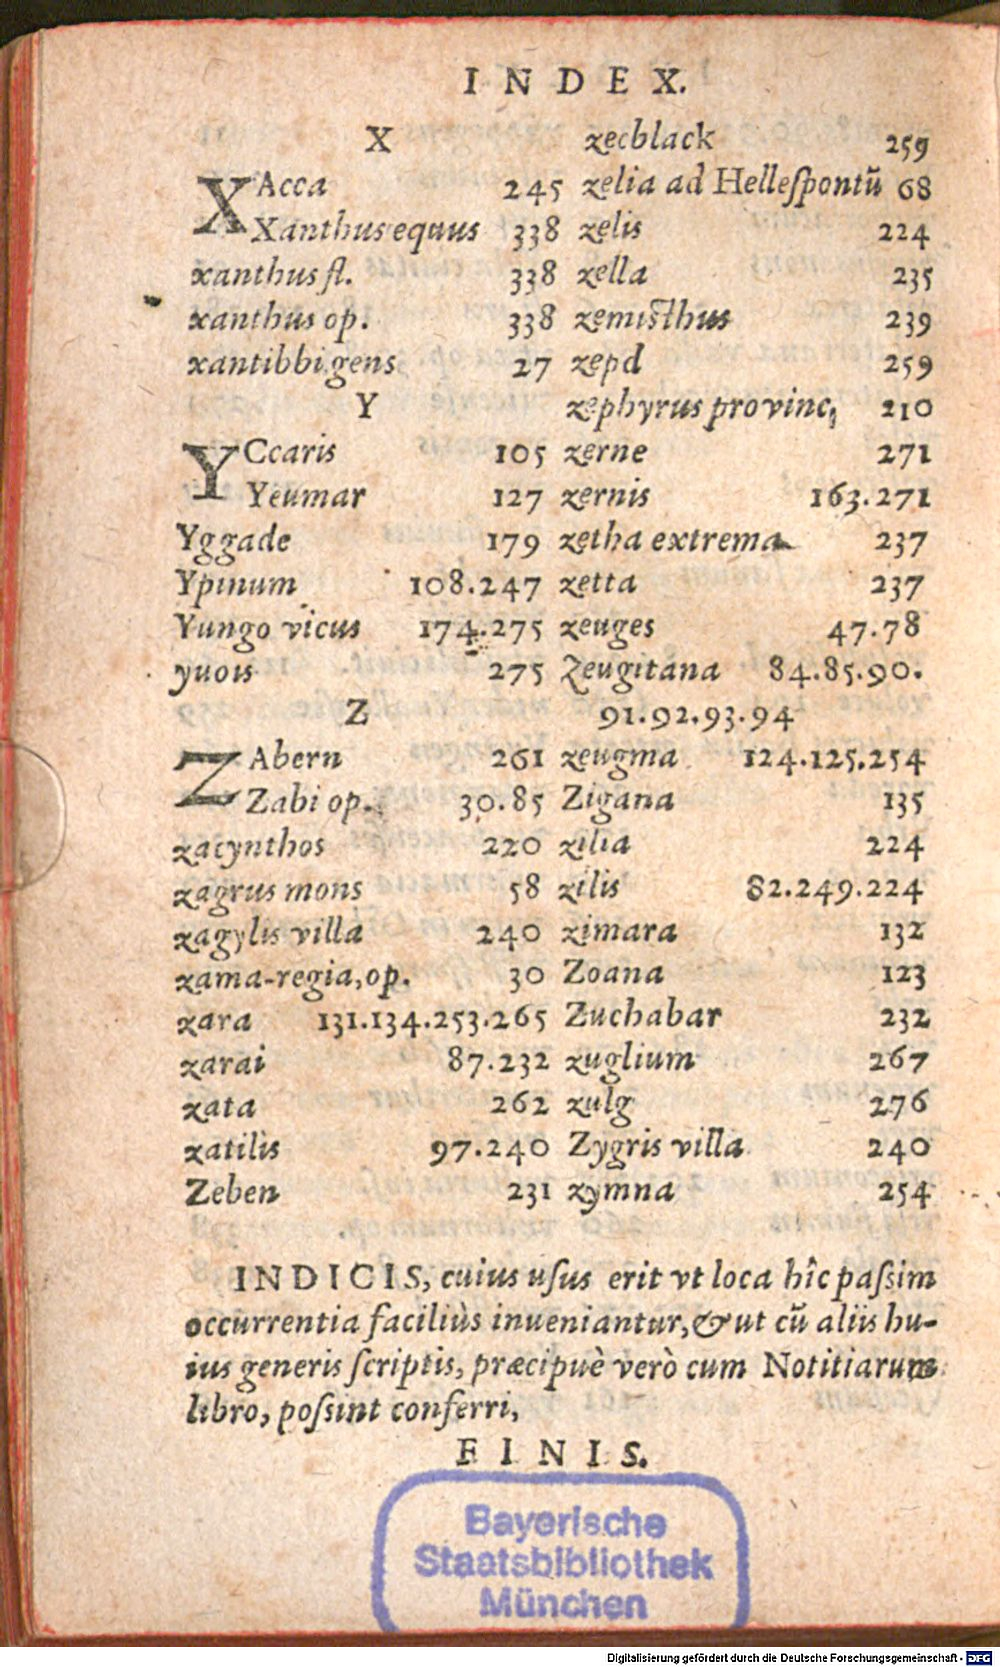 INDEX.
X
XAcca 245
Xanthus equus 338
xanthus fl. 338
xanthus op. 338
xantibbi gens 27
Y
YCcaris 105
Yeumar 127
Yggade 179
Ypinum 108.247
Yungo vicus 174.275
yuois 275
Z
ZAbern 261
Zabi op. 30.85
zacynthos 220
zagrus mons 58
zagylis villa 240
zama-regia, op. 30
zara 131.134.253.265
zarai 87.232
zata 262
zatilis 97.240
Zeben 231
zecblack 259
zelia ad Helleſpontũ 68
zelis 224
zella 235
zemisthus 239
zepd 259
zephyrus provinc, 210
zerne 271
zernis 163.271
zetha extrema 237
zetta 237
zeuges 47.78
Zeugitana 84.85.90.
91.92.93.94
zeugma 124.125.254
Zigana 135
zilia 224
zilis 82.249.224
zimara 132
Zoana 123
Zuchabar 232
zuglium 267
zulg 276
Zygris villa 240
zymna 254
INDICIS, cuius uſus erit vt loca hîc paſsim
occurrentia faciliùs inueniantur, & ut cũ aliis hu-
ius generis ſcriptis, præcipuè verò cum Notitiarum
libro, poſsint conferri,
FINIS.
Bayerische
Staatsbibliothek
München
Digitalisierung gefördert durch die Deutsche Forschungsgemeinschaft - DFG